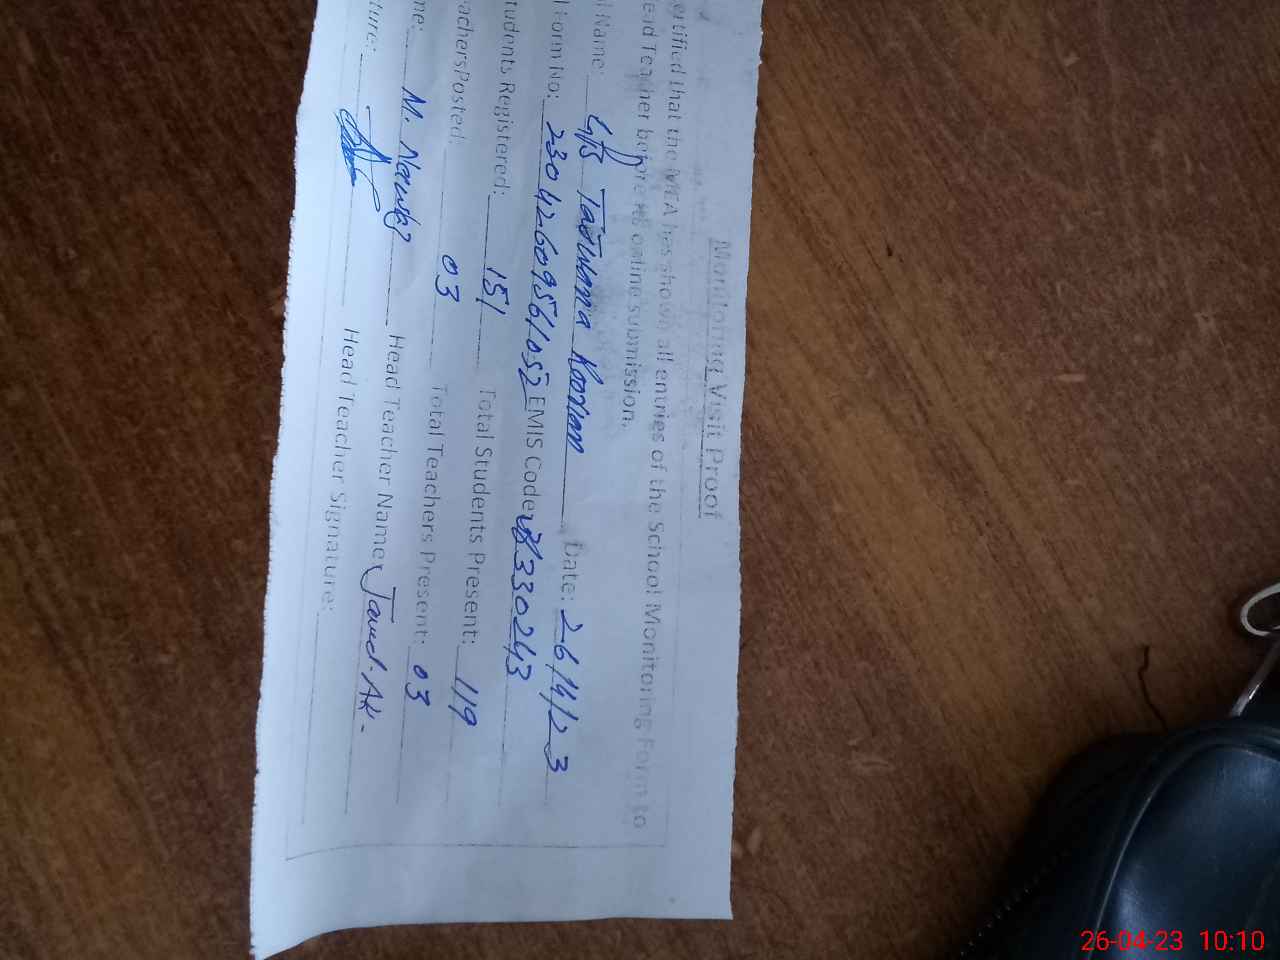 Monitoring Visit Proof
ertified that the MEA has shown all entries of the School Monitoring Form to
ead Teacher before its online submission.
l Name: Date: 26/4/23
l Form No: 23042609561052 EMIS Code: 330243
tudents Registered: 151 Total Students Present: 119
eachersPosted: 03 Total Teachers Present: 03
me: M. Nawaz Head Teacher Name: Javed. AK.
ture: Head Teacher Signature:
26-04-23 10:10